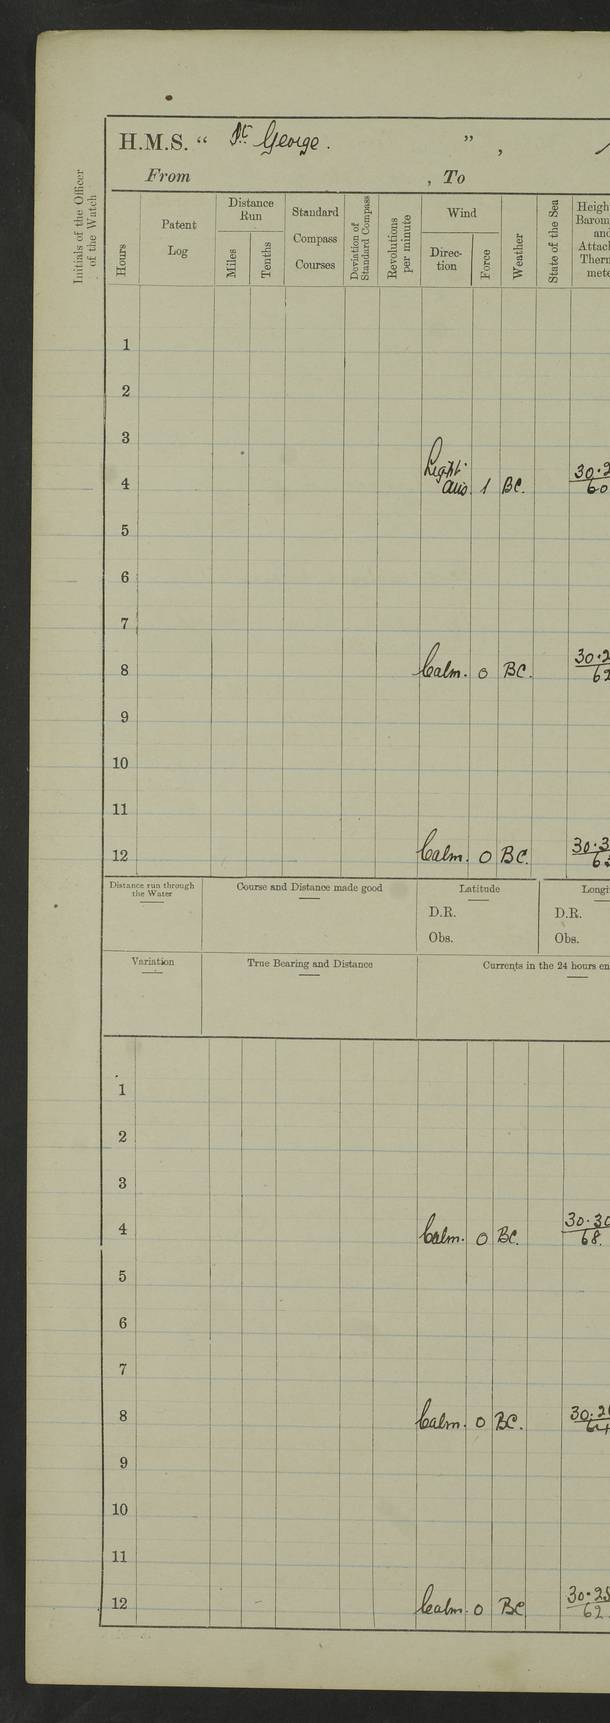 H.M.S. “ St. George. ”,
From , To
Initials of the Officer of the Watch
Hours
Patent Log
Distance Run
Miles
Tenths
Standard Compass Courses
Deviation of Standard Compass
Revolutions per minute
Wind
Direc- tion
Force
Weather
State of the Sea
Heigh
Barom
and
Attac
Ther
mete
1
2
3
4 Light airs. 1 BC. 30.2
60
5
6
7
8 Calm. 0 BC. 30.2
62
9
10
11
12 Calm. 0 BC. 30.3
Distance run through the Water
Course and Distance made good
Latitude
D.R.
Obs.
Longi
D.R.
Obs.
Variation
True Bearing and Distance
Currents in the 24 hours en
1
2
3
4 Calm. 0 BC. 30.30
68.
5
6
7
8 Calm. 0 BC. 30.2
64
9
10
11
12 Calm. 0 BC 30.28
62.